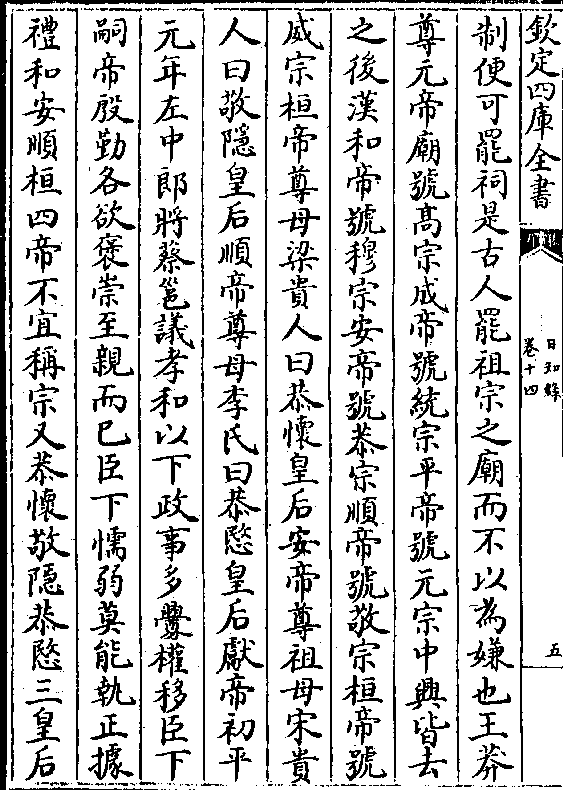 欽定四庫全書
日知錄
卷十四
五
制便可罷祠是古人罷祖宗之廟而不以為嫌也王莽
尊元帝廟號髙宗成帝號統宗平帝號元宗中興皆去
之後漢和帝號穆宗安帝號恭宗順帝號敬宗桓帝號
威宗桓帝尊母梁貴人曰恭懷皇后安帝尊祖母宋貴
人曰敬隱皇后順帝尊母李氏曰恭愍皇后獻帝初平
元年左中郎將蔡邕議孝和以下政事多釁權移臣下
嗣帝殷勤各欲褒崇至親而已臣下懦弱莫能執正據
禮和安順桓四帝不宜稱宗又恭懷敬隱恭愍三皇后